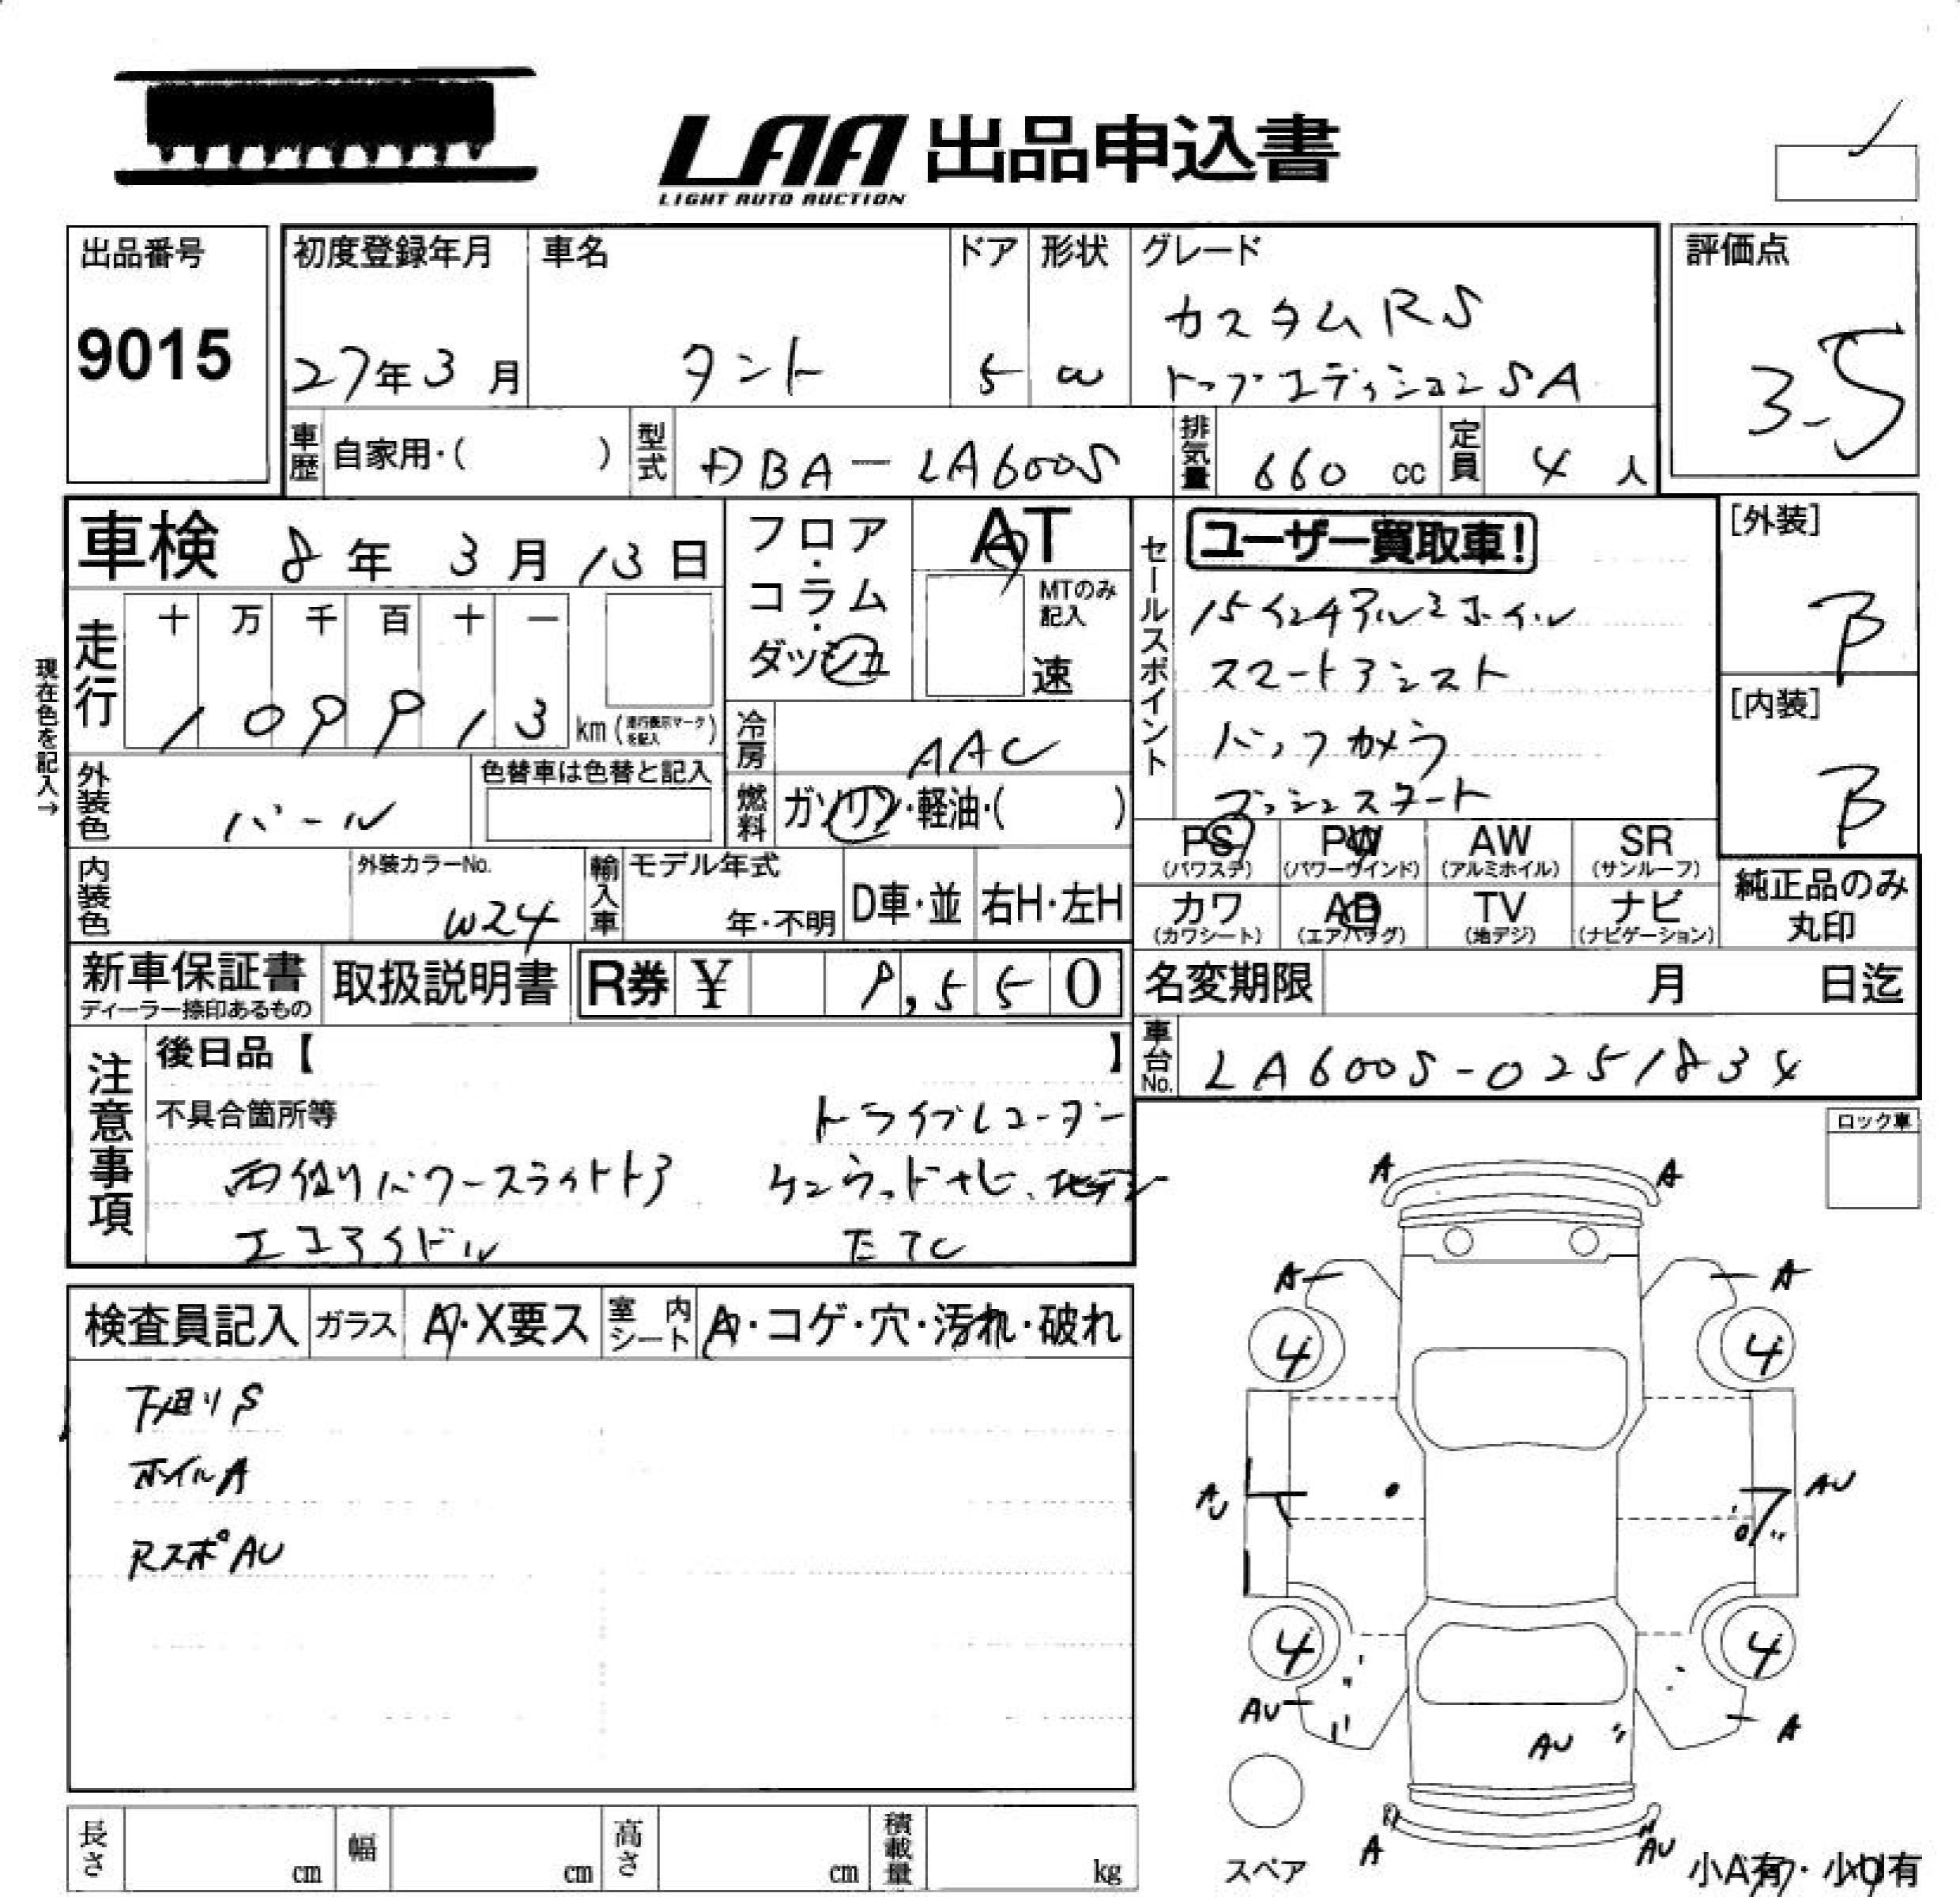 LAA 出品申込書
LIGHT AUTO AUCTION
出品番号
9015
初度登録年月
27年3月
車名
タント
ドア
5
形状
W
グレード
カスタムRS
トップエディションSA
評価点
3.5
車歴
自家用・( )
型式
DBA-LA600S
排気量
660 cc
定員
4 人
車検 8年 3月 13日
フロア・コラム・ダッシュ
AT
MTのみ記入
速
走行
十 万 千 百 十 一
109913 km (走行表示マークを記入)
現在色を記入→
外装色
パール
色替車は色替と記入
冷房
AAC
燃料
ガソリン・軽油・( )
セールスポイント
ユーザー買取車!
15インチアルミホイル
スマートアシスト
バックカメラ
プッシュスタート
[外装]
B
[内装]
B
PS
(パワステ)
PW
(パワーウインド)
AW
(アルミホイル)
SR
(サンルーフ)
カワ
(カワシート)
AB
(エアバッグ)
TV
(地デジ)
ナビ
(ナビゲーション)
純正品のみ
丸印
内装色
外装カラーNo.
W24
輸入車
モデル年式
年・不明
D車・並
右H・左H
新車保証書
ディーラー捺印あるもの
取扱説明書
R券 ¥ 9,550
名変期限 月 日迄
車台No.
LA600S-0251834
注意事項
後日品【 】
不具合箇所等
ドライブレコーダー
両側パワースライドドア ケンウッドナビ、地デジ
エコアイドル ETC
ロック車
検査員記入
ガラス
A・X要ス
室内シート
A・コゲ・穴・汚れ・破れ
下廻りS
ホイルA
RスポAU
A A
A A
4 4
AU AU
4 4
AU A
AU
A AU
スペア
小A有・小U有
長さ cm
幅 cm
高さ cm
積載量 kg